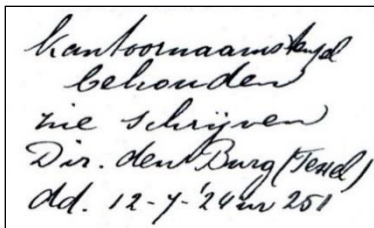 kantoornaamstempel
behouden
zie schrijven
Dir. den Burg (Texel)
dd. 12-7-'24 nr 251